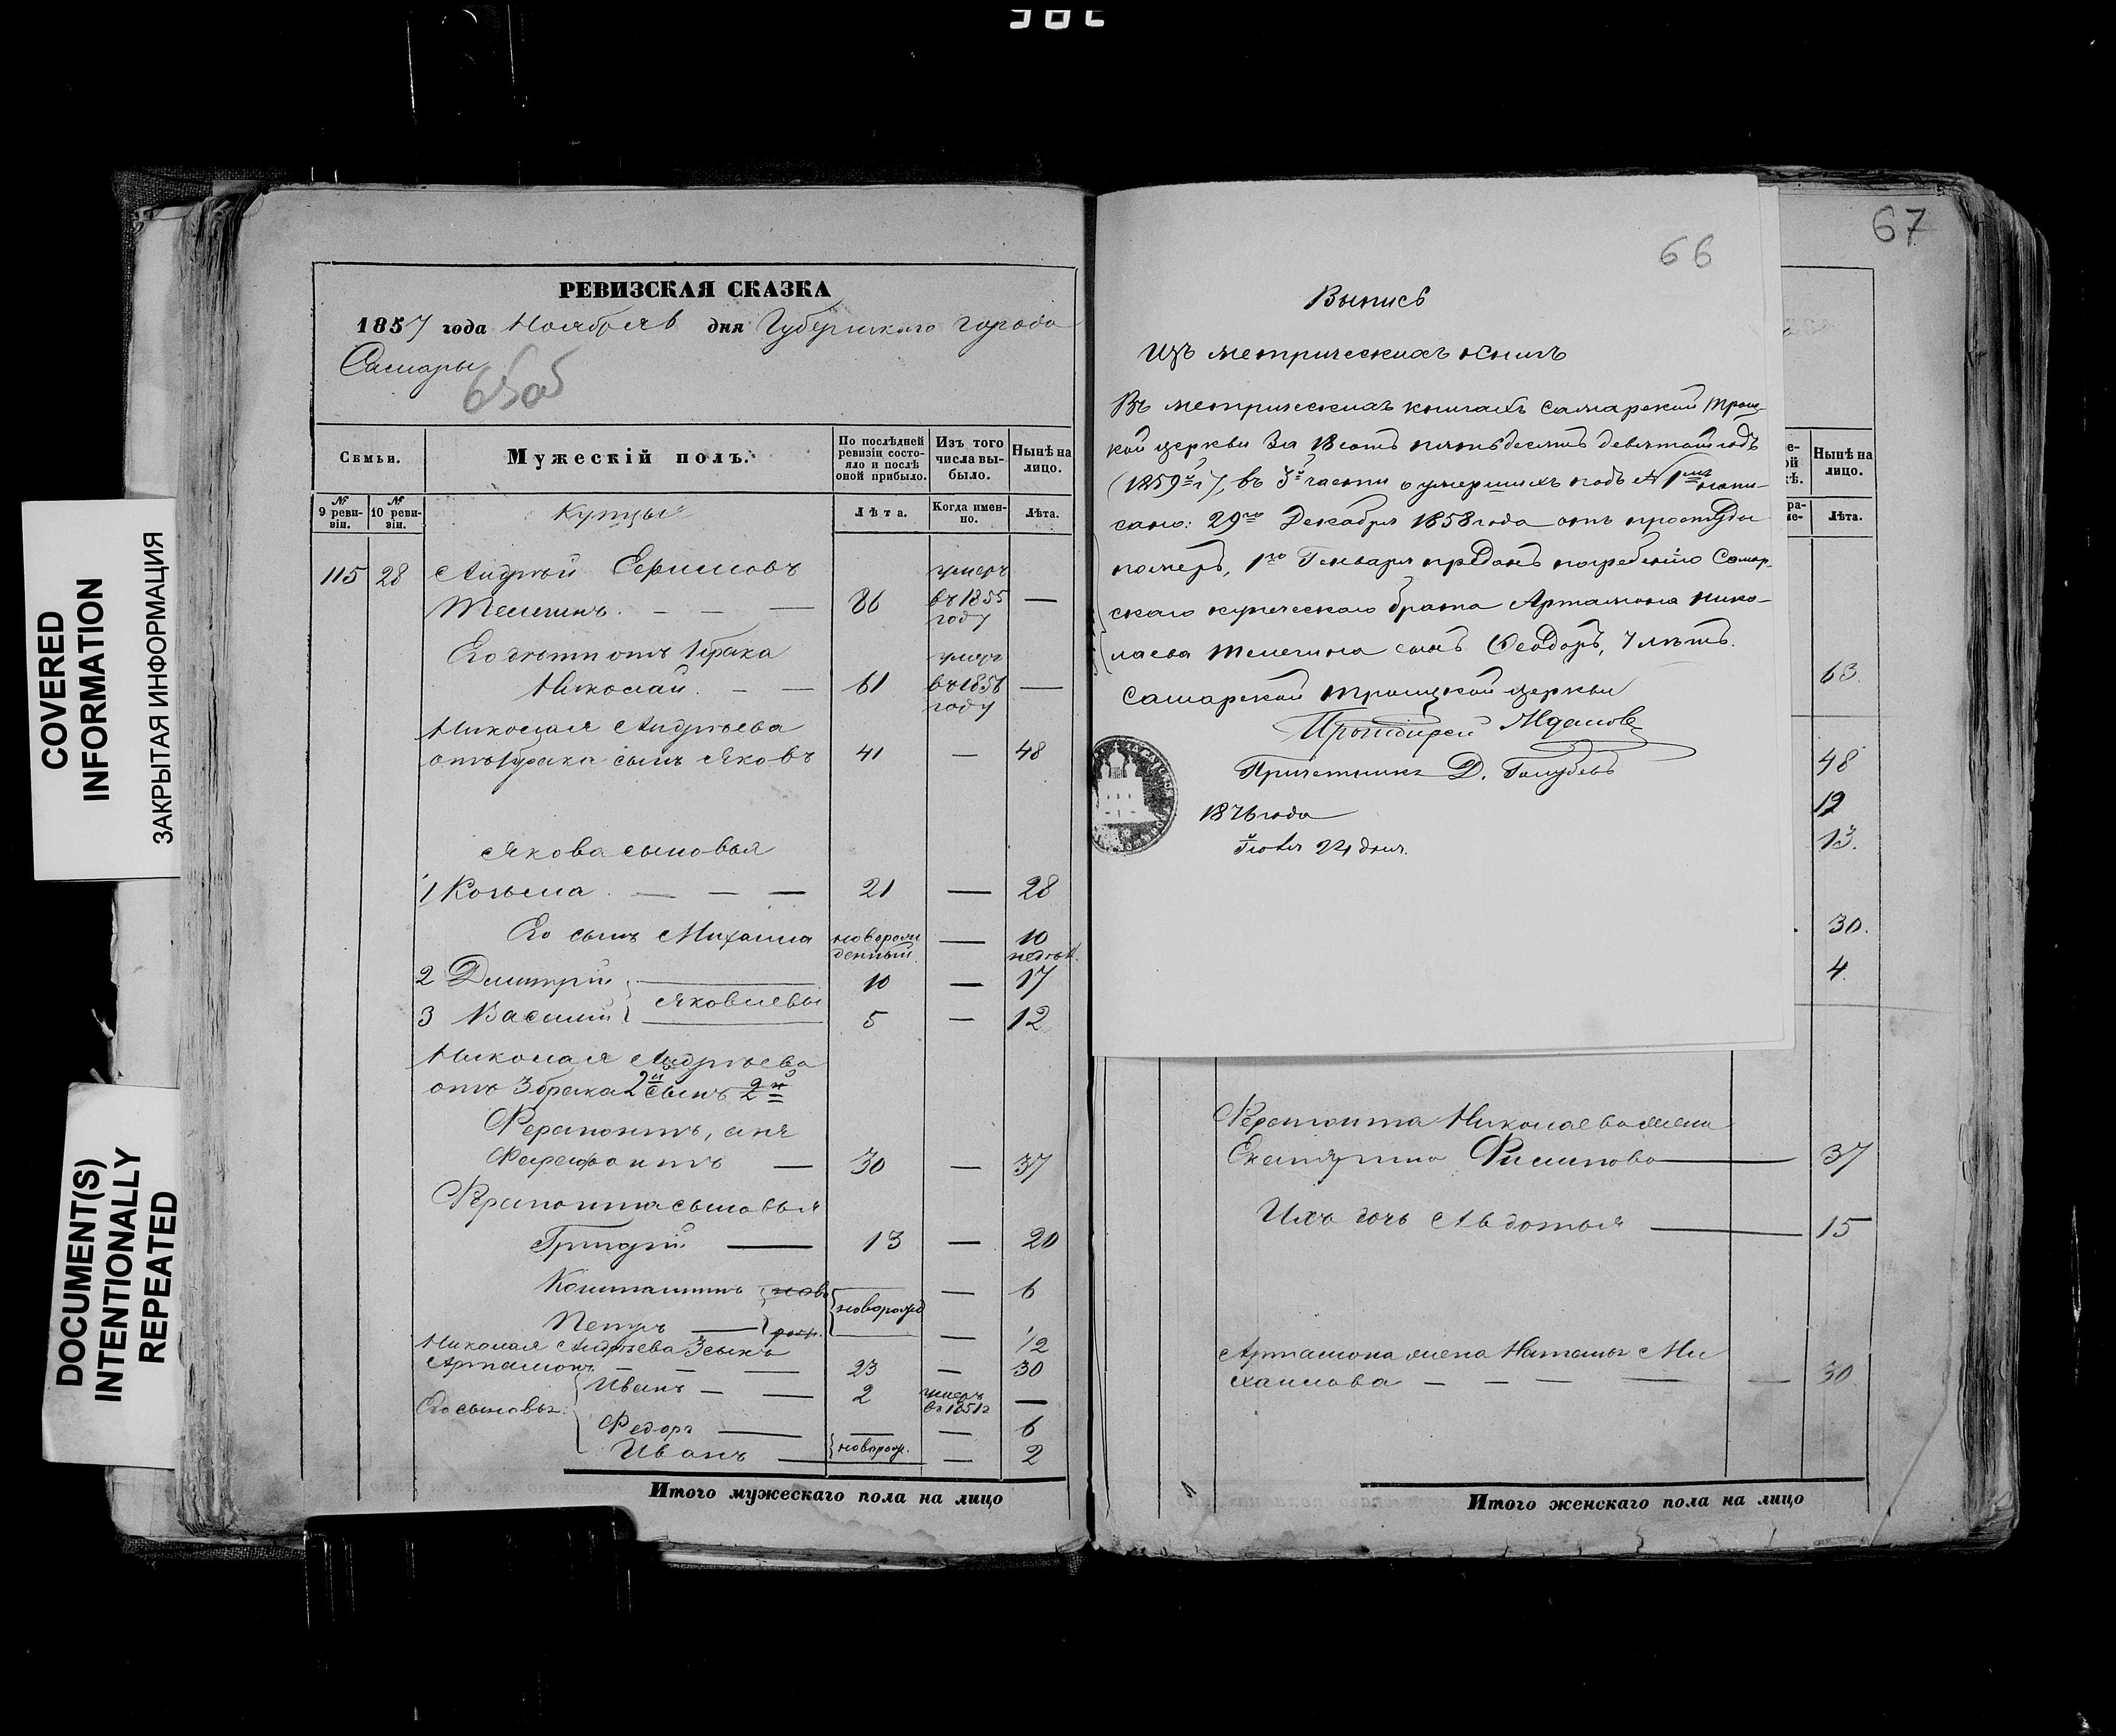 COVERED
INFORMATION
ЗАКРЫТАЯ ИНФОРМАЦИЯ
DOCUMENT(S)
INTENTIONALLY
REPEATED
РЕВИЗСКАЯ СКАЗКА
1857 года Ноября 6 дня Губернскаго города
Самары
65об
Семьи.
Мужескій полъ.
По послѣдней ревизіи состояло и послѣ оной прибыло.
Изъ того числа выбыло.
Нынѣ на лицо.
№ 9 ревизіи.
№ 10 ревизіи.
Купцы
Лѣта.
Когда именно.
Лѣта.
115 28 Андрей Ефимовъ
Телегинъ. — — — 86 умеръ въ 1855 году —
Его дѣти отъ 1 брака
Николай. — — 61 умеръ въ 1856 году —
Николая Андреева
отъ 1 брака сынъ Яковъ 41 — 48
Якова сыновья
1 Козьма. — — — 21 — 28
Его сынъ Михаила новорожденный — 10 недѣл.
2 Дмитрій 10 — 17
Яковлевы
3 Василій 5 — 12
Николая Андреева
отъ 3 брака 2й сынъ 2й
Ферапонтъ, а не
Фарафонтъ — 30 — 37
Ферапонта сыновья
Григорій — 13 — 20
Константинъ — 6
новорожд
Петръ — — 1/2
Николая Андреева 3 сынъ
Артамонъ — — — 23 — 30
Иванъ — — 2 умеръ въ 1851г —
Его сыновья:
Федоръ — — — 6
новорож.
Иванъ — — 2
Итого мужескаго пола на лицо
67
66
Выпись
Изъ метрическихъ книгъ
Въ метрическихъ книгахъ Самарской Троиц-
кой церкви За 18 сотъ пятьдесятъ девятый годъ
(1859й г), въ 3й части о умершихъ подъ № 1мъ напи-
сано: 29го Декабря 1858 года отъ простуды
померъ, 1го Генваря преданъ погребенію Самар-
скаго купеческаго брата Артамона Нико-
лаева Телегина сынъ Феодоръ, 7 лѣтъ.
Самарской Троицкой церкви
Протоіерей
Причетникъ Д. Голубевъ
1876 года
Іюля 24 дня.
Нынѣ на лицо.
Лѣта.
63.
48
19
13.
30.
4.
Ферапонта Николаева жена
Екатерина Филипова — 37
Ихъ дочь Авдотья — 15
Артамона жена Наталья Ми
хаилова — — — — — 30
Итого женскаго пола на лицо